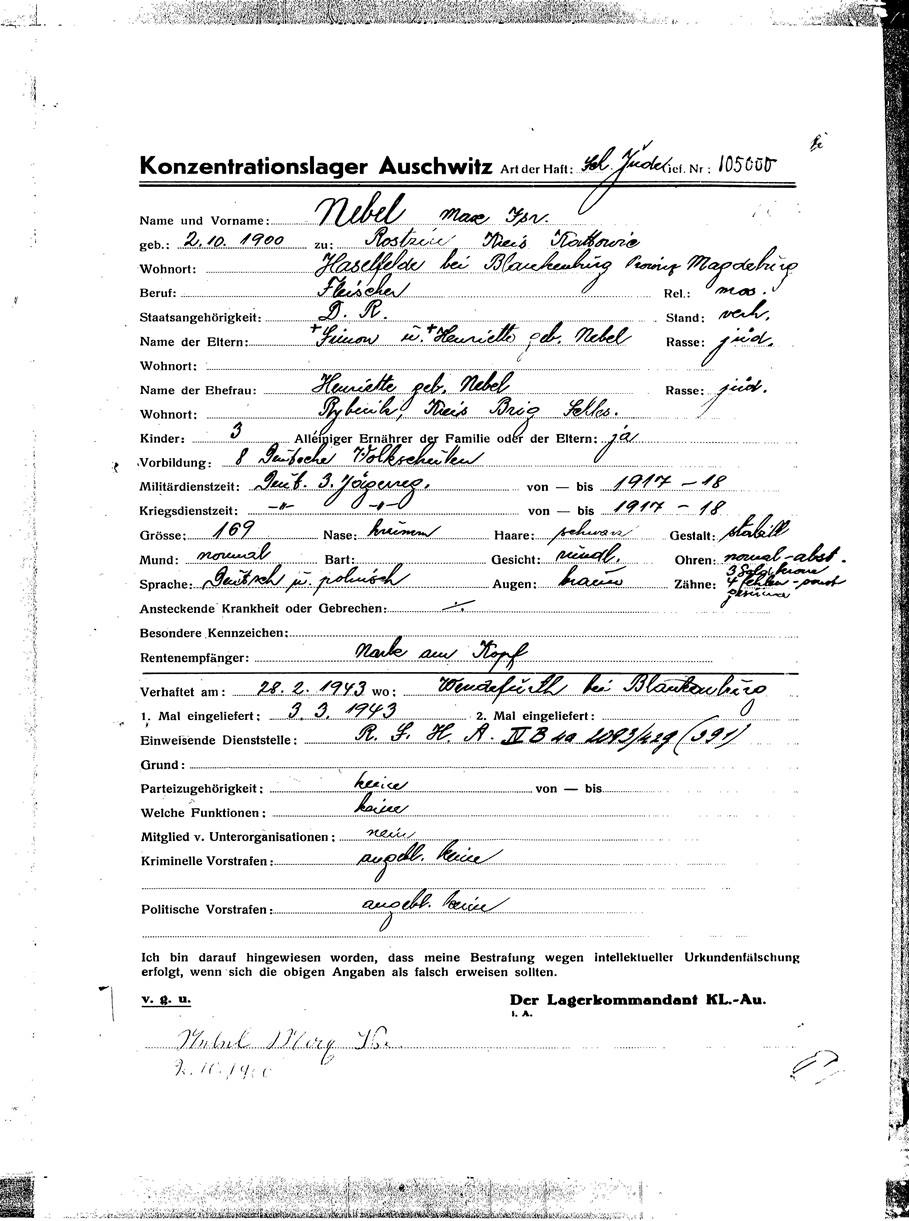 Konzentrationslager Auschwitz Art der Haft: Sch. Jude Gef. Nr: 105000
Name und Vorname: Nebel Max Isr.
geb.: 2.10. 1900 zu: Rostzin Kreis Kattowic
Wohnort: Haselfelde bei Blankenburg Provinz Magdeburg
Beruf: Fleischer Rel.: mos.
Staatsangehörigkeit: D. R. Stand: verh.
Name der Eltern: +Simon u. +Henriette geb. Nebel Rasse: jüd.
Wohnort:
Name der Ehefrau: Henriette geb. Nebel Rasse: jüd.
Wohnort: Kreis Brig Schles.
Kinder: 3 Alleiniger Ernährer der Familie oder der Eltern: ja
Vorbildung: 8 Deutsche Volkschulen
Militärdienstzeit: Deut. 3. Jägerreg. von — bis 1917 – 18
Kriegsdienstzeit: -"- -"- von — bis 1917 – 18
Grösse: 169 Nase: krumm Haare: schwarz Gestalt: stabill
Mund: normal Bart: Gesicht: rundl. Ohren: normal-abst.
Sprache: Deutsch u. polnisch Augen: braun Zähne: 3 Goldkrone
4 fehlen - sonst
gesund
Ansteckende Krankheit oder Gebrechen: ./.
Besondere Kennzeichen:
Rentenempfänger: Narbe am Kopf
Verhaftet am: 28. 2. 1943 wo: Wendefurth bei Blankenburg
1. Mal eingeliefert: 3. 3. 1943 2. Mal eingeliefert:
Einweisende Dienststelle: R. S. H. A. IV B 4a 2093/42g (391)
Grund:
Parteizugehörigkeit: keine von — bis
Welche Funktionen: keine
Mitglied v. Unterorganisationen: nein
Kriminelle Vorstrafen: angebl. keine
Politische Vorstrafen: angebl. keine
Ich bin darauf hingewiesen worden, dass meine Bestrafung wegen intellektueller Urkundenfälschung
erfolgt, wenn sich die obigen Angaben als falsch erweisen sollten.
v. g. u. Der Lagerkommandant KL.-Au.
I. A.
Nebel
2.10.1900